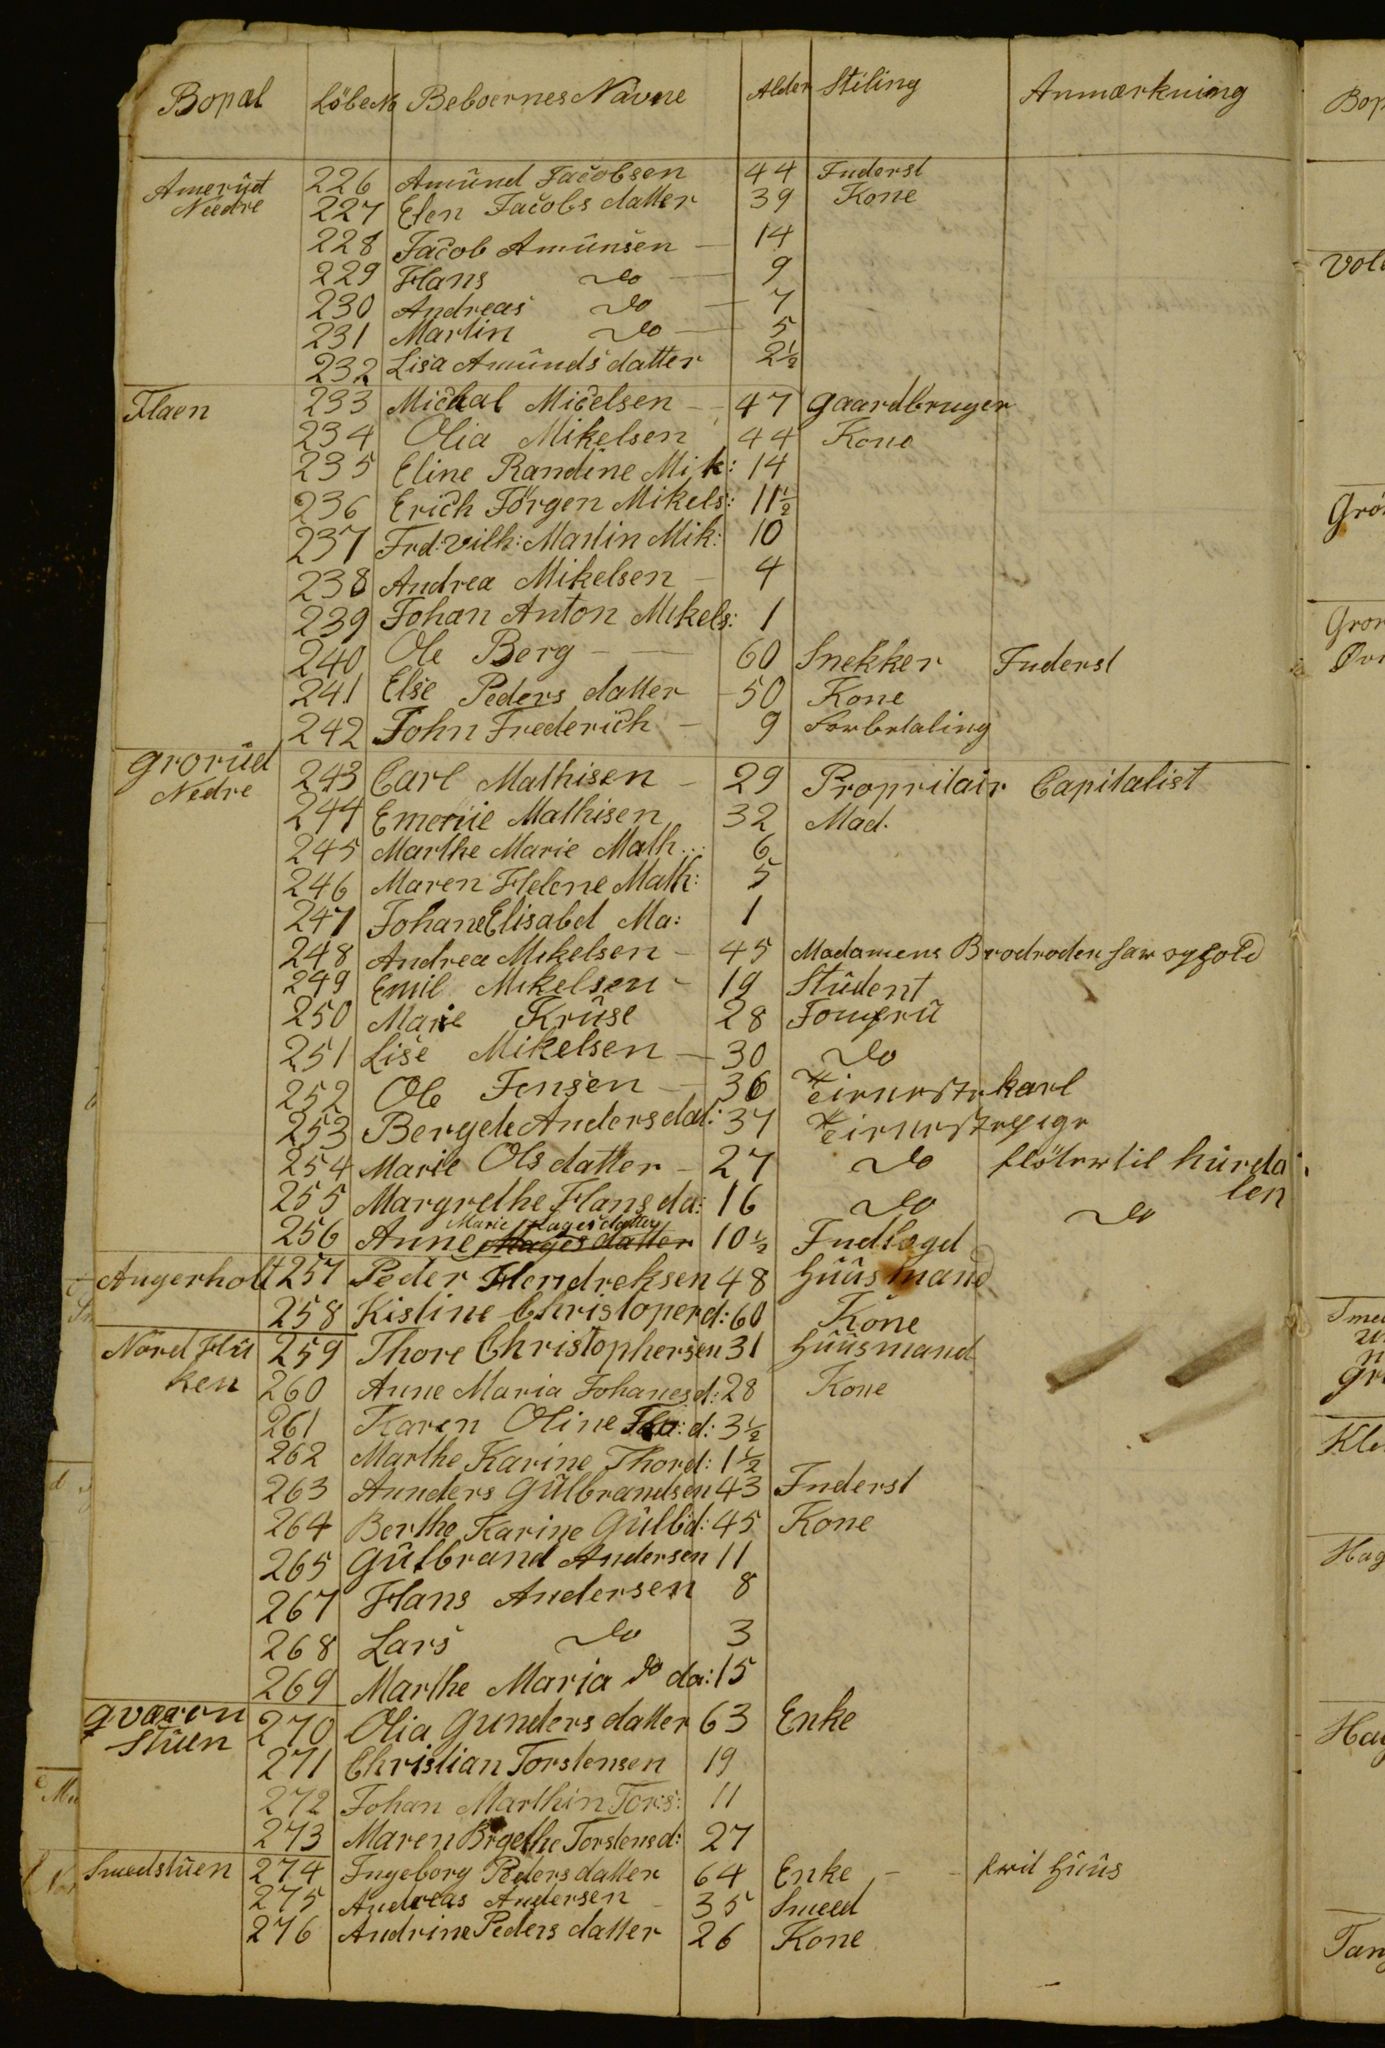 Bopæl Löbe No Beboernes Navne Alder Stiling Anmærkning
Amerüd 226 Amünd Jacobsen 44 Inderst
Needre 227 Elen Jacobs datter 39 Kone
228 Jacob Amünsen - 14
229 Hans do - 9
230 Andreas do - 7
231 Martin do - 5
232 Lisa Amünds datter 2½
Flaen 233 Michal Micelsen - 47 Gaardbruger
234 Olia Mikelsen 44 Kone
235 Eline Randine Mik: 14
236 Erich Jörgen Mikels: 11½
237 Frd: Vilh: Martin Mik: 10
238 Andrea Mikelsen - 4
239 Johan Anton Mikels: 1
240 Ole Berg - 60 Snekker Inderst
241 Else Peders datter - 50 Kone
242 John Frederich - 9 Forbetaling
Grorüd 243 Carl Mathisen - 29 Propritair Capitalist
Nedre 244 Mathisen 32 Mad.
245 Marthe Marie Math..: 6
246 Maren Helene Math: 5
247 Johane Elisabet Ma: 1
248 Andrea Mikelsen - 45 Madamens
249 Emil Mikelsen - 19 Stüdent
250 Marie Krüse 28
251 Lise Mikelsen - 30 do
252 Ole Jensen - 36
253 Anders dat: 37
254 Marie Ols datter - 27 do til Hürda
255 Margrethe Hans da: 16 do do len
Marie Hages datter
256 Anne Hages datter 10½ Indlagd
Augerholt 257 Peder Hendreksen 48 Hüüsmand
258 Kistine Christoper d: 60 Kone
Nord Hü 259 Thore Christophersen 31 Hüüsmand
ken 260 Anne Maria Johanes d: 28 Kone
261 Karen Oline d: 3½
262 Marthe Karine Thord: 1½
263 Annders Gülbrandsen 43 Inderst
264 Berthe Karine Gülbd: 45 Kone
265 Gülbrand Andersen 11
267 Hans Andersen 8
268 Lars do 3
269 Marthe Maria do da: 15
Qværon 270 Olia Gunders datter 63 Enke
Stüen 271 Christian Torstensen 19
272 Johan Marthin Tors: 11
273 Maren Torstensd: 27
Smedstüen 274 Ingeborg Peders datter 64 Enke - - frit Hüüs
275 Andreas Andersen 35 Smeed
276 Andrine Peders datter 26 Kone